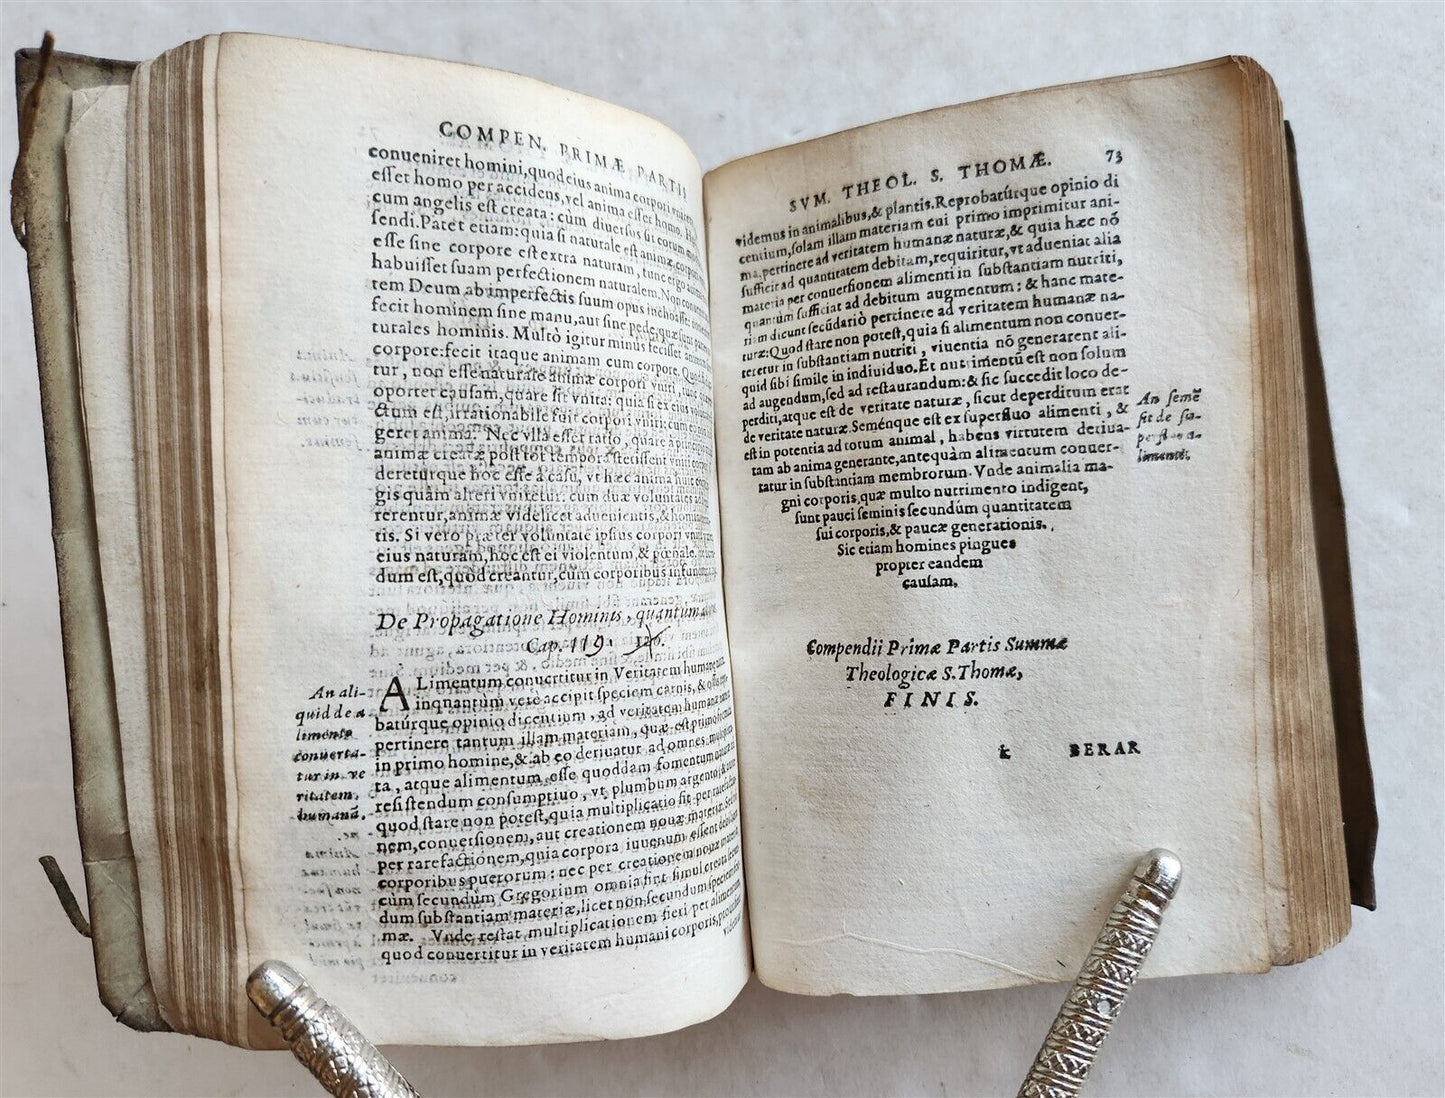 COMPEN. PRIMÆ PARTIS
conueniret homini, quod eius anima corpori vniretur
esset homo per accidens, vel anima esset homo.
cum angelis est creata: cùm diuersus sit eorum modus
sendi. Patet etiam: quia si naturale est animæ, corpori
esse sine corpore est extra naturam, tunc ergo anima
habuisset suam perfectionem naturalem. Non
tem Deum ab imperfectis suum opus inchoasse:
fecit hominem sine manu, aut sine pede, quæ sunt partes
turales hominis. Multò igitur minus fecisset animam
corpore: fecit itaque animam cum corpore.
tur, non esse naturale animæ corpori vniri, tunc
oportet causam, quare sit vnita: quia si ex eius
ctum est, irrationabile fuit corpori vniri: cum
geret anima. Nec vlla esset ratio, quare à principio
animæ creatæ post tot tempora stetissent vniri corpori
dereturque hoc esse a casu, vt hæc anima huic
gis quàm alteri vniretur: cum duæ voluntates
rerentur, animæ videlicet aduenientis, & hominis
tis. Si vero præter voluntatē ipsius corpori vniretur
eius naturam, hoc est ei violentum, & pœnale.
dum est, quod creantur, cum corporibus infunduntur
De Propagatione Hominis, quantum
Cap. 119. 120.
An ali-
quid de a
limento
conuerta-
tur in ve
ritatem
humanā.
ALimentum conuertitur in Veritatem humanæ
inquantùm verè accipit speciem carnis, & ossis
batúrque opinio dicentium, ad veritatem humanæ
pertinere tantum illam materiam, quæ est primò
in primo homine, & ab eo deriuatur ad omnes
ta, atque alimentum, esse quoddam fomentum
resistendum consumptiuo, vt plumbum argento;
quod stare non potest, quia multiplicatio fit per
nem, conuersionem, aut creationem nouæ materiæ. Sed
per rarefactionem, quia corpora iuuenum essent debiliora
corporibus puerorum: nec per creationem nouæ materiæ
cùm secundùm Gregorium omnia sint simul creata
dum substantiam materiæ, licet non secundùm speciem
mæ. Vnde restat multiplicationem fieri per alimentum
quod conuertitur in veritatem humani corporis,
SVM. THEOL. S. THOMÆ. 73
videmus in animalibus, & plantis. Reprobatúrque opinio di
centium, solam illam materiam cui primo imprimitur ani-
ma, pertinere ad veritatem humanæ naturæ, & quia hæc nō
sufficit ad quantitatem debitam, requiritur, vt adueniat alia
materia per conuersionem alimenti in substantiam nutriti,
quantùm sufficiat ad debitum augmentum: & hanc mate-
riam dicunt secūdariò pertinere ad veritatem humanæ na-
turæ: Quod stare non potest, quia si alimentum non conuer-
teretur in substantiam nutriti, viuentia nō generarent ali-
quid sibi simile in indiuiduo. Et nutrimentū est non solum
ad augendum, sed ad restaurandum: & sic succedit loco de-
perditi, atque est de veritate naturæ, sicut deperditum erat
de veritate naturæ. Seménque est ex superfluo alimenti, &
est in potentia ad totum animal, habens virtutem deriua-
tam ab anima generante, antequàm alimentum conuer-
tatur in substantiam membrorum. Vnde animalia ma-
gni corporis, quæ multo nutrimento indigent,
sunt pauci seminis secundùm quantitatem
sui corporis, & paucæ generationis.
Sic etiam homines pingues
propter eandem
causam.
An semē
sit de su-
perfluo a-
limenti.
Compendii Primæ Partis Summæ
Theologicæ S. Thomæ,
FINIS.
k BERAR